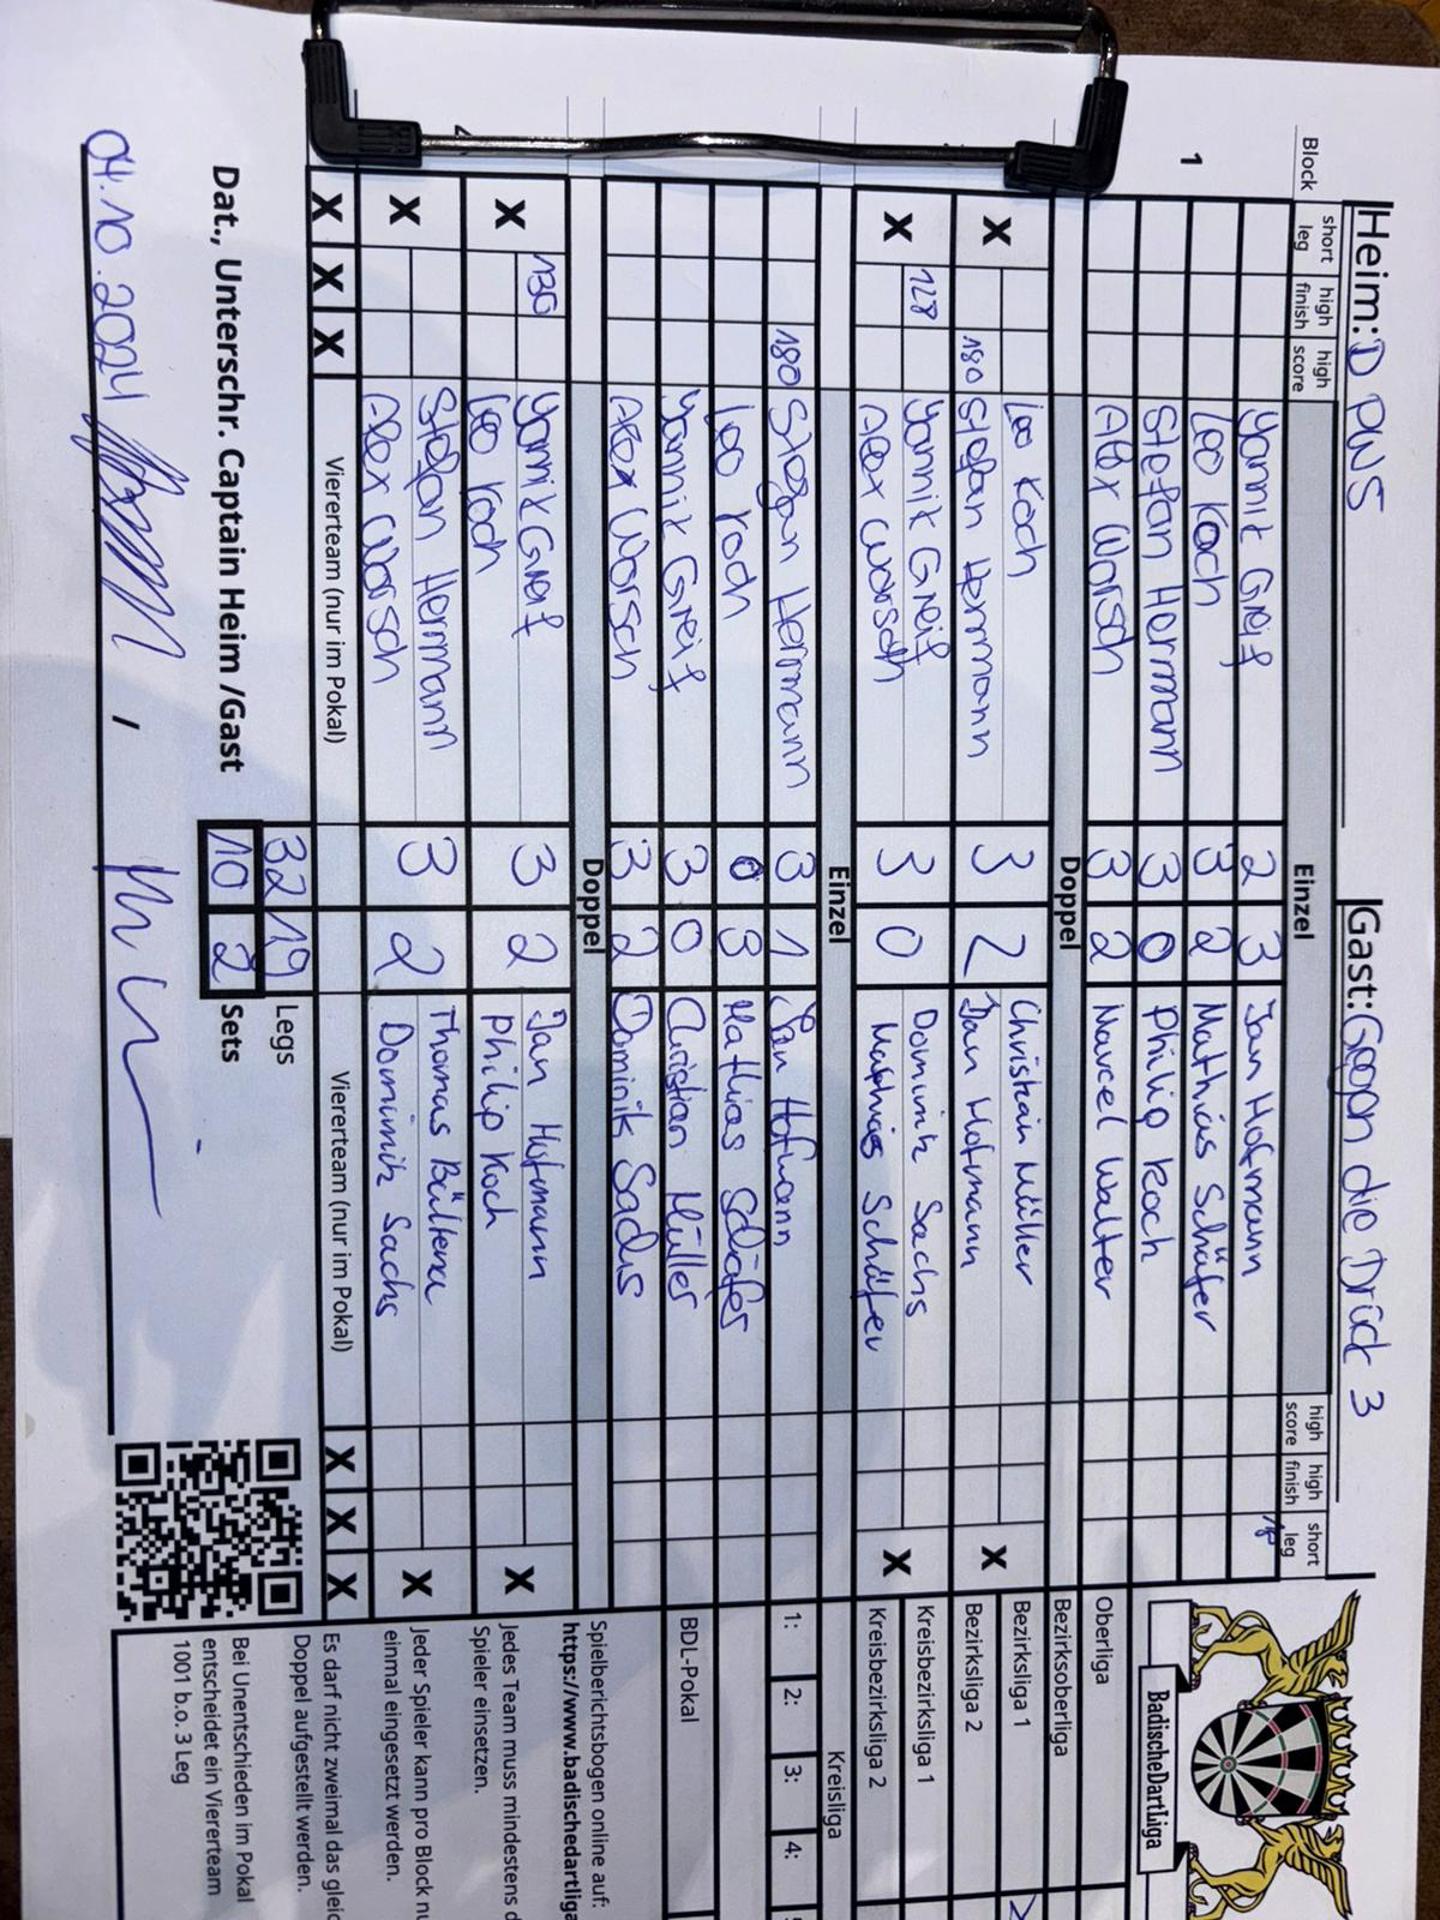 Heim: D PWS Gast: Gegen die Drück 3
Block short leg high finish high score Einzel high score high finish short leg
1
Yannik Greif 2 3 Jan Hofmann 18
Leo Koch 3 2 Mathias Schäfer
Stefan Hermann 3 0 Philip Koch
Alex Worsch 3 2 Marcel Walter
Doppel
X Leo Koch 3 2 Christian Müller X
180 Stefan Hermann Jan Hofmann
X 128 Yannik Greif 3 0 Dominik Sachs X
Alex Worsch Mathias Schäfer
Einzel
180 Stefan Hermann 3 1 Jan Hofmann
Leo Koch 0 3 Mathias Schäfer
Yannik Greif 3 0 Christian Müller
Alex Worsch 3 2 Dominik Sachs
Doppel
X 130 Yannik Greif 3 2 Jan Hofmann X
Leo Koch Philip Koch
X Stefan Hermann 3 2 Thomas
Alex Worsch Dominik Sachs X
X X X Viererteam (nur im Pokal) Viererteam (nur im Pokal) X X X
32 19 Legs
Dat., Unterschr. Captain Heim /Gast 10 2 Sets
04.10.2024
BadischeDartLiga
Oberliga
Bezirksoberliga
Bezirksliga 1
Bezirksliga 2
Kreisbezirksliga 1
Kreisbezirksliga 2
Kreisliga
1: 2: 3: 4:
BDL-Pokal
Spielberichtsbogen online auf:
https://www.badischedartliga
Jedes Team muss mindestens
Spieler einsetzen.
Jeder Spieler kann pro Block
einmal eingesetzt werden.
Es darf nicht zweimal das
Doppel aufgestellt werden.
Bei Unentschieden im Pokal
entscheidet ein Viererteam
1001 b.o. 3 Leg